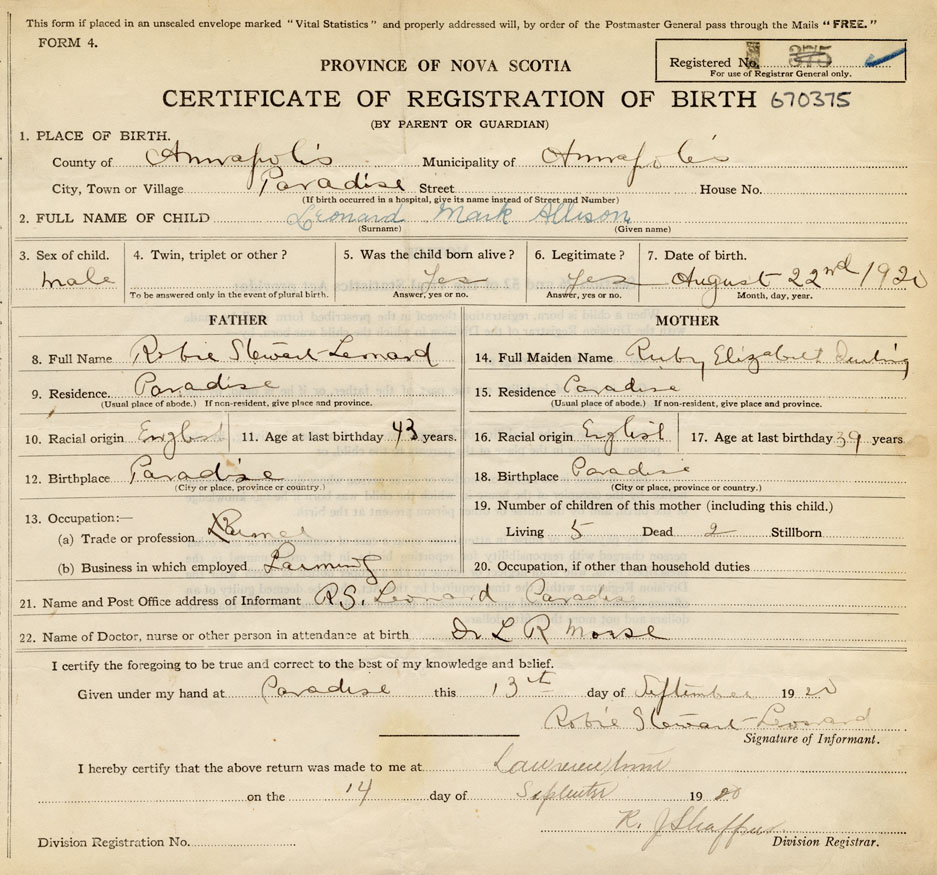 This form if placed in an unsealed envelope marked "Vital Statistics" and properly addressed will, by order of the Postmaster General pass through the Mails "FREE."
FORM 4.
Registered No. 375
For use of Registrar General only.
PROVINCE OF NOVA SCOTIA
CERTIFICATE OF REGISTRATION OF BIRTH 670375
(BY PARENT OR GUARDIAN)
1. PLACE OF BIRTH.
County of Annapolis Municipality of Annapolis
City, Town or Village Paradise Street House No.
(If birth occurred in a hospital, give its name instead of Street and Number)
2. FULL NAME OF CHILD Leonard Mark Allison
(Surname) (Given name)
3. Sex of child. 4. Twin, triplet or other? 5. Was the child born alive? 6. Legitimate? 7. Date of birth.
male Yes Yes August 22nd 1920
To be answered only in the event of plural birth. Answer, yes or no. Answer, yes or no. Month, day, year.
FATHER MOTHER
8. Full Name Robie Stewart Leonard 14. Full Maiden Name Ruby Elizabeth
9. Residence. Paradise 15. Residence Paradise
(Usual place of abode.) If non-resident, give place and province. (Usual place of abode.) If non-resident, give place and province.
10. Racial origin English 11. Age at last birthday 43 years. 16. Racial origin English 17. Age at last birthday 39 years
12. Birthplace Paradise 18. Birthplace Paradise
(City or place, province or country.) (City or place, province or country.)
13. Occupation:— 19. Number of children of this mother (including this child.)
(a) Trade or profession Farmer Living 5 Dead 2 Stillborn
(b) Business in which employed Farming 20. Occupation, if other than household duties
21. Name and Post Office address of Informant R.S. Leonard Paradise
22. Name of Doctor, nurse or other person in attendance at birth Dr L R Morse
I certify the foregoing to be true and correct to the best of my knowledge and belief.
Given under my hand at Paradise this 13th day of September 1920
Robie Stewart Leonard
Signature of Informant.
I hereby certify that the above return was made to me at Lawrencetown
on the 14 day of September 1920
R. J Shaffner
Division Registration No. Division Registrar.